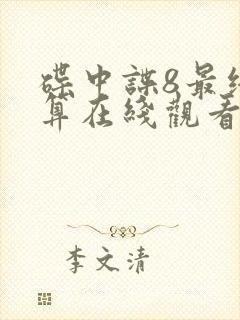 碟中諜8最終
算在綫觀看
李文清